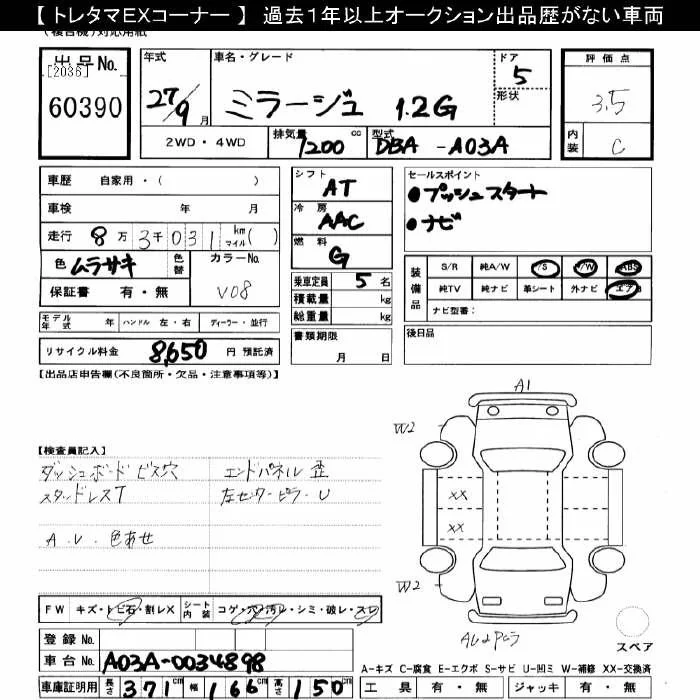 【 トレタマEXコーナー 】 過去1年以上オークション出品歴がない車両
(複合機)対応用紙
出品No.
[2036]
60390
年式
27/9月
車名・グレード
ミラージュ 1.2G
ドア
5
形状
評価点
3.5
内装
C
2WD・4WD
排気量
1200 cc
型式
DBA -A03A
車歴 自家用・( )
車検 年 月
走行 8万3千031 km マイル( )
色 ムラサキ
色替
カラーNo.
V08
保証書 有・無
モデル年式 年
ハンドル 左・右
ディーラー・並行
リサイクル料金 8,650 円 預託済
シフト
AT
冷房
AAC
燃料
G
乗車定員 5 名
積載量 kg
総重量 kg
書類期限
月 日
セールスポイント
●プッシュスタート
●ナビ
装備品
S/R 純A/W P/S P/W ABS
純TV 純ナビ 革シート 外ナビ エアB
ナビ型番:
後日品
【出品店申告欄(不良箇所・欠品・注意事項等)】
【検査員記入】
ダッシュボード ビス穴
エンドパネル 歪
スタッドレスT
左センターピラー U
A.U. 色あせ
A1
W2
XX
XX
W2
スペア
FW キズ・トビ石・割レX
シート内装 コゲ・穴・汚レ・シミ・破レ・スレ
登録No.
車台No. A03A-0034898
車庫証明用 長さ 371cm 幅 166cm 高さ 150cm
A-キズ C-腐食 E-エクボ S-サビ U-凹ミ W-補修 XX-交換済
工具 有・無 ジャッキ 有・無